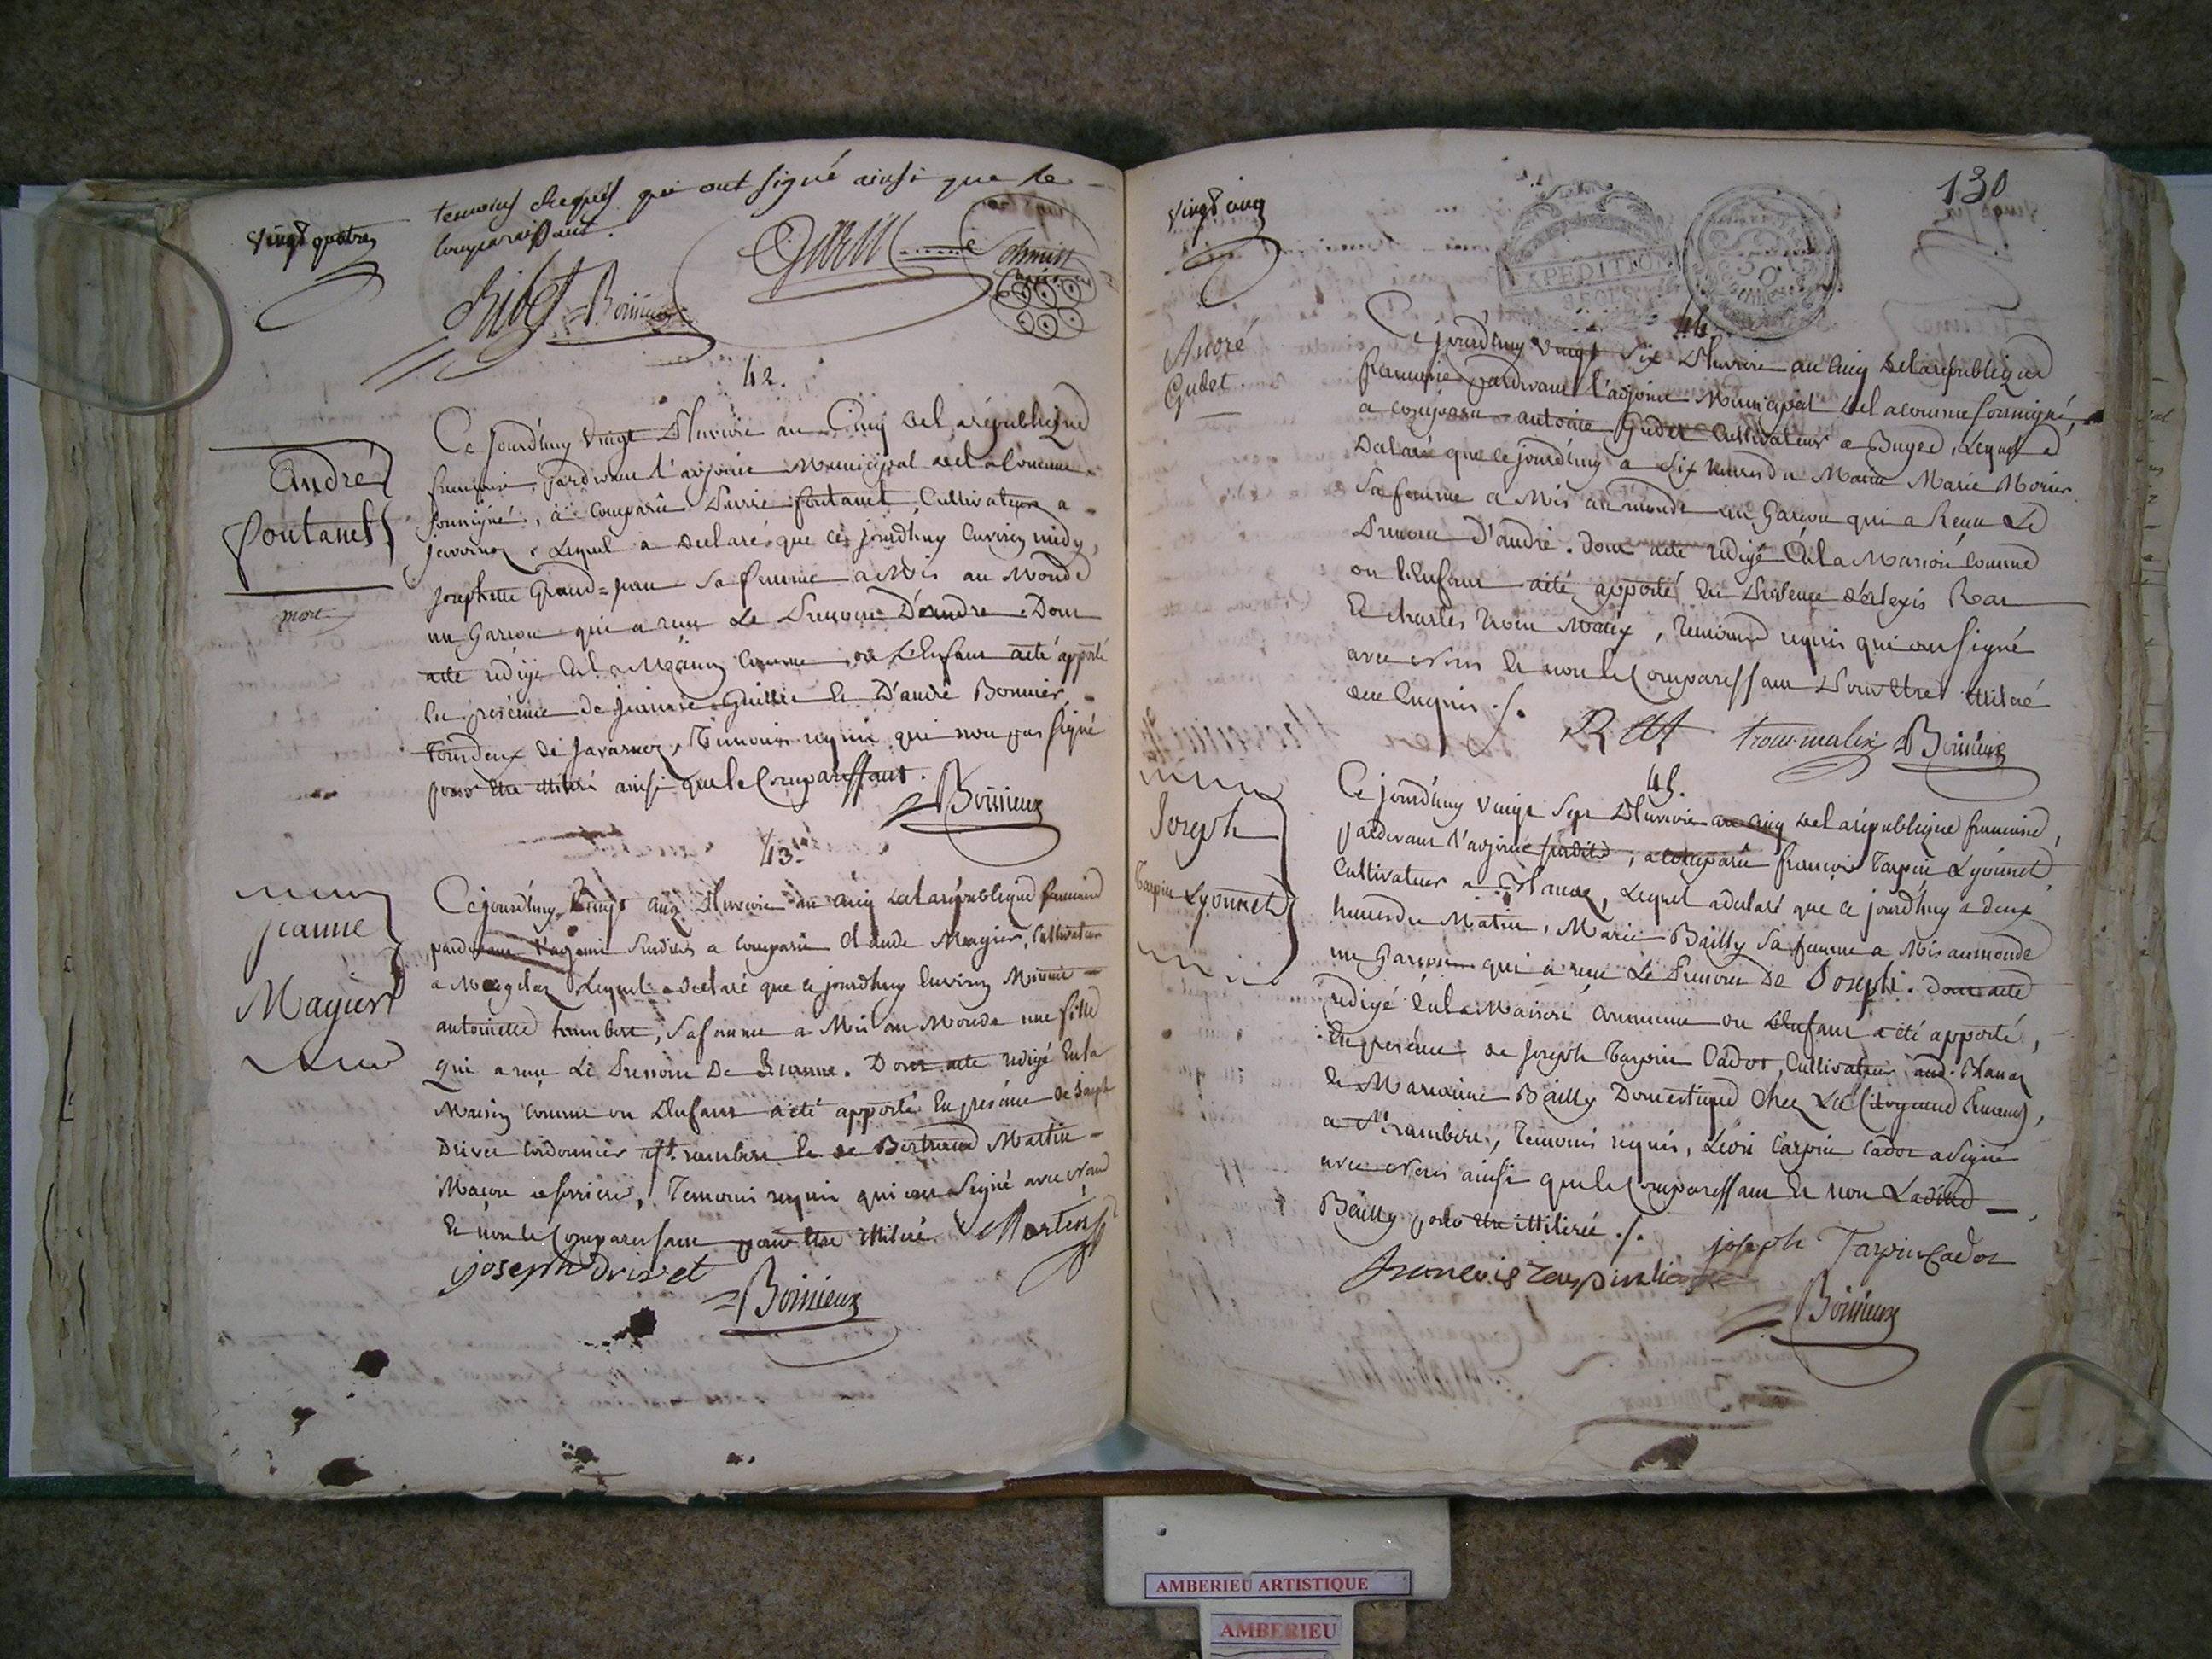 temoins Requis qui ont signé ainsi que le
comparaissant.
vingt quatre
Ribet Boinieux
42.
André
Fontanet
mort
Ce jourd'huy vingt Pluviose an Cinq de la république
francoise, pardevant l'adjoint Municipal de la Comune
soussigné, a comparû Pierre fontanet, Cultivateur a
javornoz, Lequel a declaré que ce jourdhuy Environ midy,
josephette Grand-jean sa femme a Mis au Monde
un Garson qui a reçu Le Prenom D'andre. Dont
acte redigé En la Maison Comune ou L'Enfant aété apporté
En presence de Guillin Et D'andré Bonnier,
de Javornoz, Temoins requis qui nont pas signé
pour être illitéré ainsi que le Comparissant.
Boinieux
43.
Jeanne
Magieur
Ce jourdhuy Vingt cinq Pluviose an cinq de la république francoise
pardevant l'adjoint susdit a comparû Claude Magier, Cultivateur
a Lequel a declaré que ce jourdhuy Environ Minuit
antoinette humbert, sa femme a Mis au Monde une fille
qui a reçu Le Prenom De Jeanne. Dont acte redigé En la
Maison Comune ou L'Enfant aété apporté En présence de Joseph
Drivet Cordonnier a St. rambert Et de Bertrand Martin
Maçon a serrieres, Temoins requis qui ont Signé avec Nous
Et non le Comparissant pour être illitéré. Martin
joseph drivet
Boinieux
130
vingt cinq
EXPEDITION
44.
André
Gudet
Ce jourdhuy vingt six Pluviose an Cinq de la république
francoise pardevant l'adjoint Municipal de la comune soussigné,
a comparu antoine Gudet Cultivateur a Buges, Lequel a
Declaré que ce jourdhuy a six heures du Matin Marie Morier
Sa femme a Mis au monde un Garson qui a Reçu Le
Prenom D'andré. dont acte redigé En la Maison Comune
ou L'Enfant aété apporté En Présence d'alexis Rat
Et charles Malix, Temoins requis qui ont signé
avec Nous Et non le Comparissant Pour être illitéré
de ce Enquis ./.
Rat Boinieux
45.
Joseph
Tarpin Lyonnet
Ce jourdhuy vingt Sept Pluviose an cinq de la république francoise,
pardevant l'adjoint susdit, a comparû françois Tarpin Lyonnet,
Cultivateur a Blanaz, Lequel a declaré que ce jourdhuy a deux
heures du Matin, Marie Bailly Sa femme a Mis au monde
un Garson qui a reçu Le Prenom De Joseph. dont acte
redigé En la Maison Comune ou L'Enfant a été apporté,
En présence de Joseph Tarpin Cador, Cultivateur aud. Blanaz
Et Marianne Bailly Domestique Chez La Citoyenne
a St. rambert, Temoins requis, Ledit Tarpin Cador a Signé
avec Nous ainsi que le Comparissant Et non Ladite
Bailly pour être illitérée ./. joseph Tarpin Cador
francois tarpin
Boinieux
AMBERIEU ARTISTIQUE
AMBERIEU